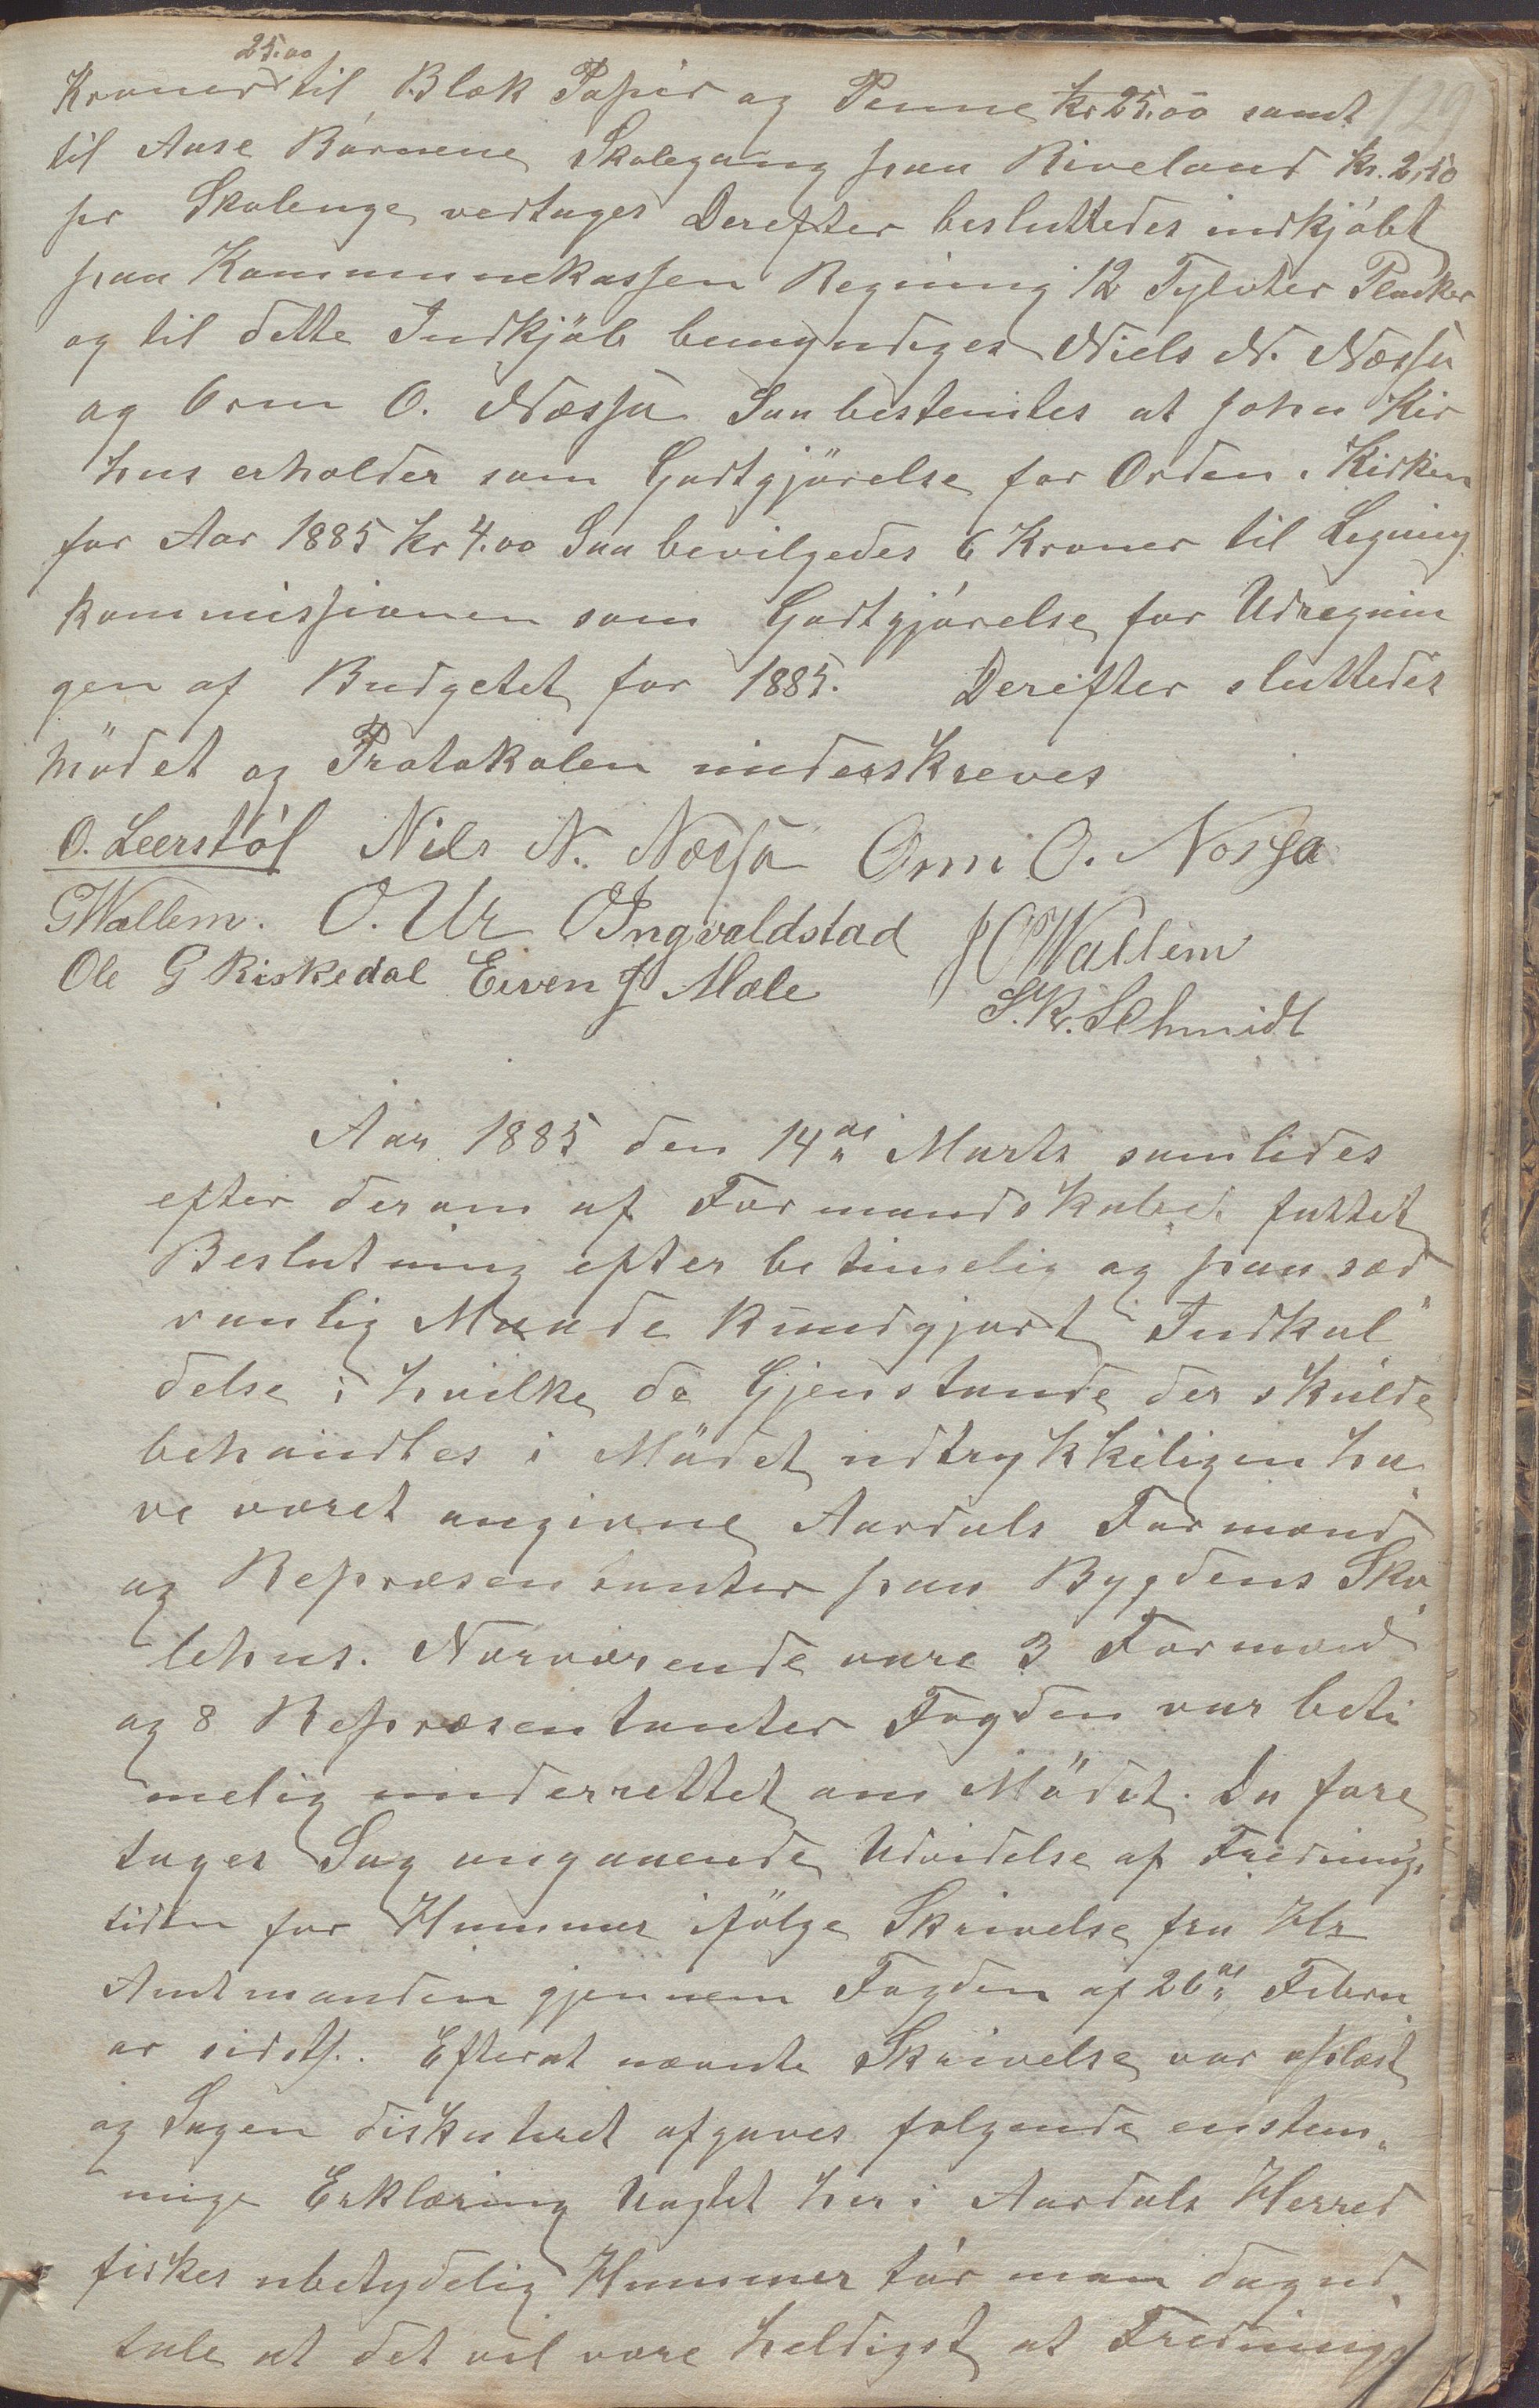 129
25.00
Kroner til Blæk Papir og Penne kr 25.00 samt
til Aase Börnene Skolegang paa Riveland kr. 2,50
pr Skoleuge vedtages Derefter besluttedes indkjöbt
paa Kommunekassen Regning 12 Tylvter Planker
og til dette Indkjöb bemyndiges Niels N. Næssa
og Orm O. Næssa Saa bestemtes at John Kir
hus erholder som Godtgjörelse for Orden i Kirken
for Aar 1885 kr 4.00 Saa bevilgedes 6 Kroner til Ligning
kommissionen som Godtgjörelse for Udregnin
gen af Budgetet for 1885. Derefter sluttedes
mödet og Protokolen underskreves
O. Leerstöl Nils N. Næssa Orm O. Nossa
GWallem. O. Ur O Ingvaldstad J O Wallem
Ole G Riskedal Eiven J Mæle
S. Kr. Schmidt
Aar 1885 den 14de Marts samledes
efter derom af Formandskabet fattet
Beslutning efter betimelig og paa sæd
vanlig Maade kundgjort Indkal
delse i hvilke de Gjenstande der skulde
behandles i Mödet udtrykkeligen ha
ve været angivne Aardals Formænd
og Repræsentanter paa Bygdens Sko
lehus. Nærværende vare 3 Formænd
og 8 Repræsentanter Fogden var beti
melig underrettet om Mödet. Da fore
tages Sag angaaende Udvidelse af Frednings
tiden for Hummer ifölge Skrivelse fra Hr
Amtmanden gjennem Fogden af 26de Febru
ar sidstl. Efterat nævnte Skrivelse var oplæst
og Sagen diskuteret afgaves folgende enstem
mige Erklæring Uagtet her i Aardals Herred
fiskes ubetydelig Hummer tör man dog ud
tale at det vil være heldigst at Frednings